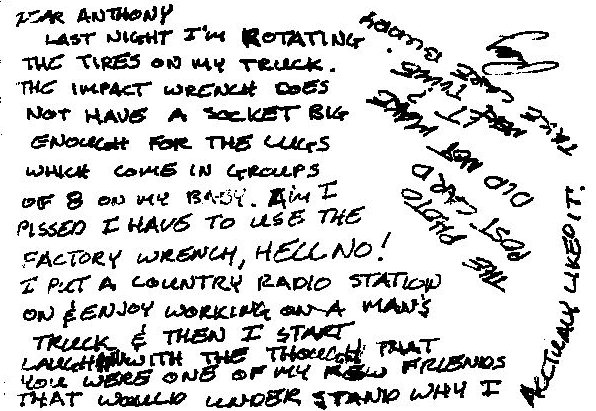 DEAR ANTHONY
LAST NIGHT I'M ROTATING
THE TIRES ON MY TRUCK.
THE IMPACT WRENCH DOES
NOT HAVE A SOCKET BIG
ENOUGH FOR THE LUGS
WHICH COME IN GROUPS
OF 8 ON MY BABY. AM I
PISSED I HAVE TO USE THE
FACTORY WRENCH, HELL NO!
I PUT A COUNTRY RADIO STATION
ON & ENJOY WORKING ON A MAN'S
TRUCK & THEN I START
LAUGHIN WITH THE THOUGHT THAT
YOU WERE ONE OF MY FEW FRIENDS
THAT WOULD UNDER STAND WHY I
ACCTUALLY LIKED IT!
THE PHOTO
POST CARD
DID NOT MAKE
IT
TAKE CARE BUDDY